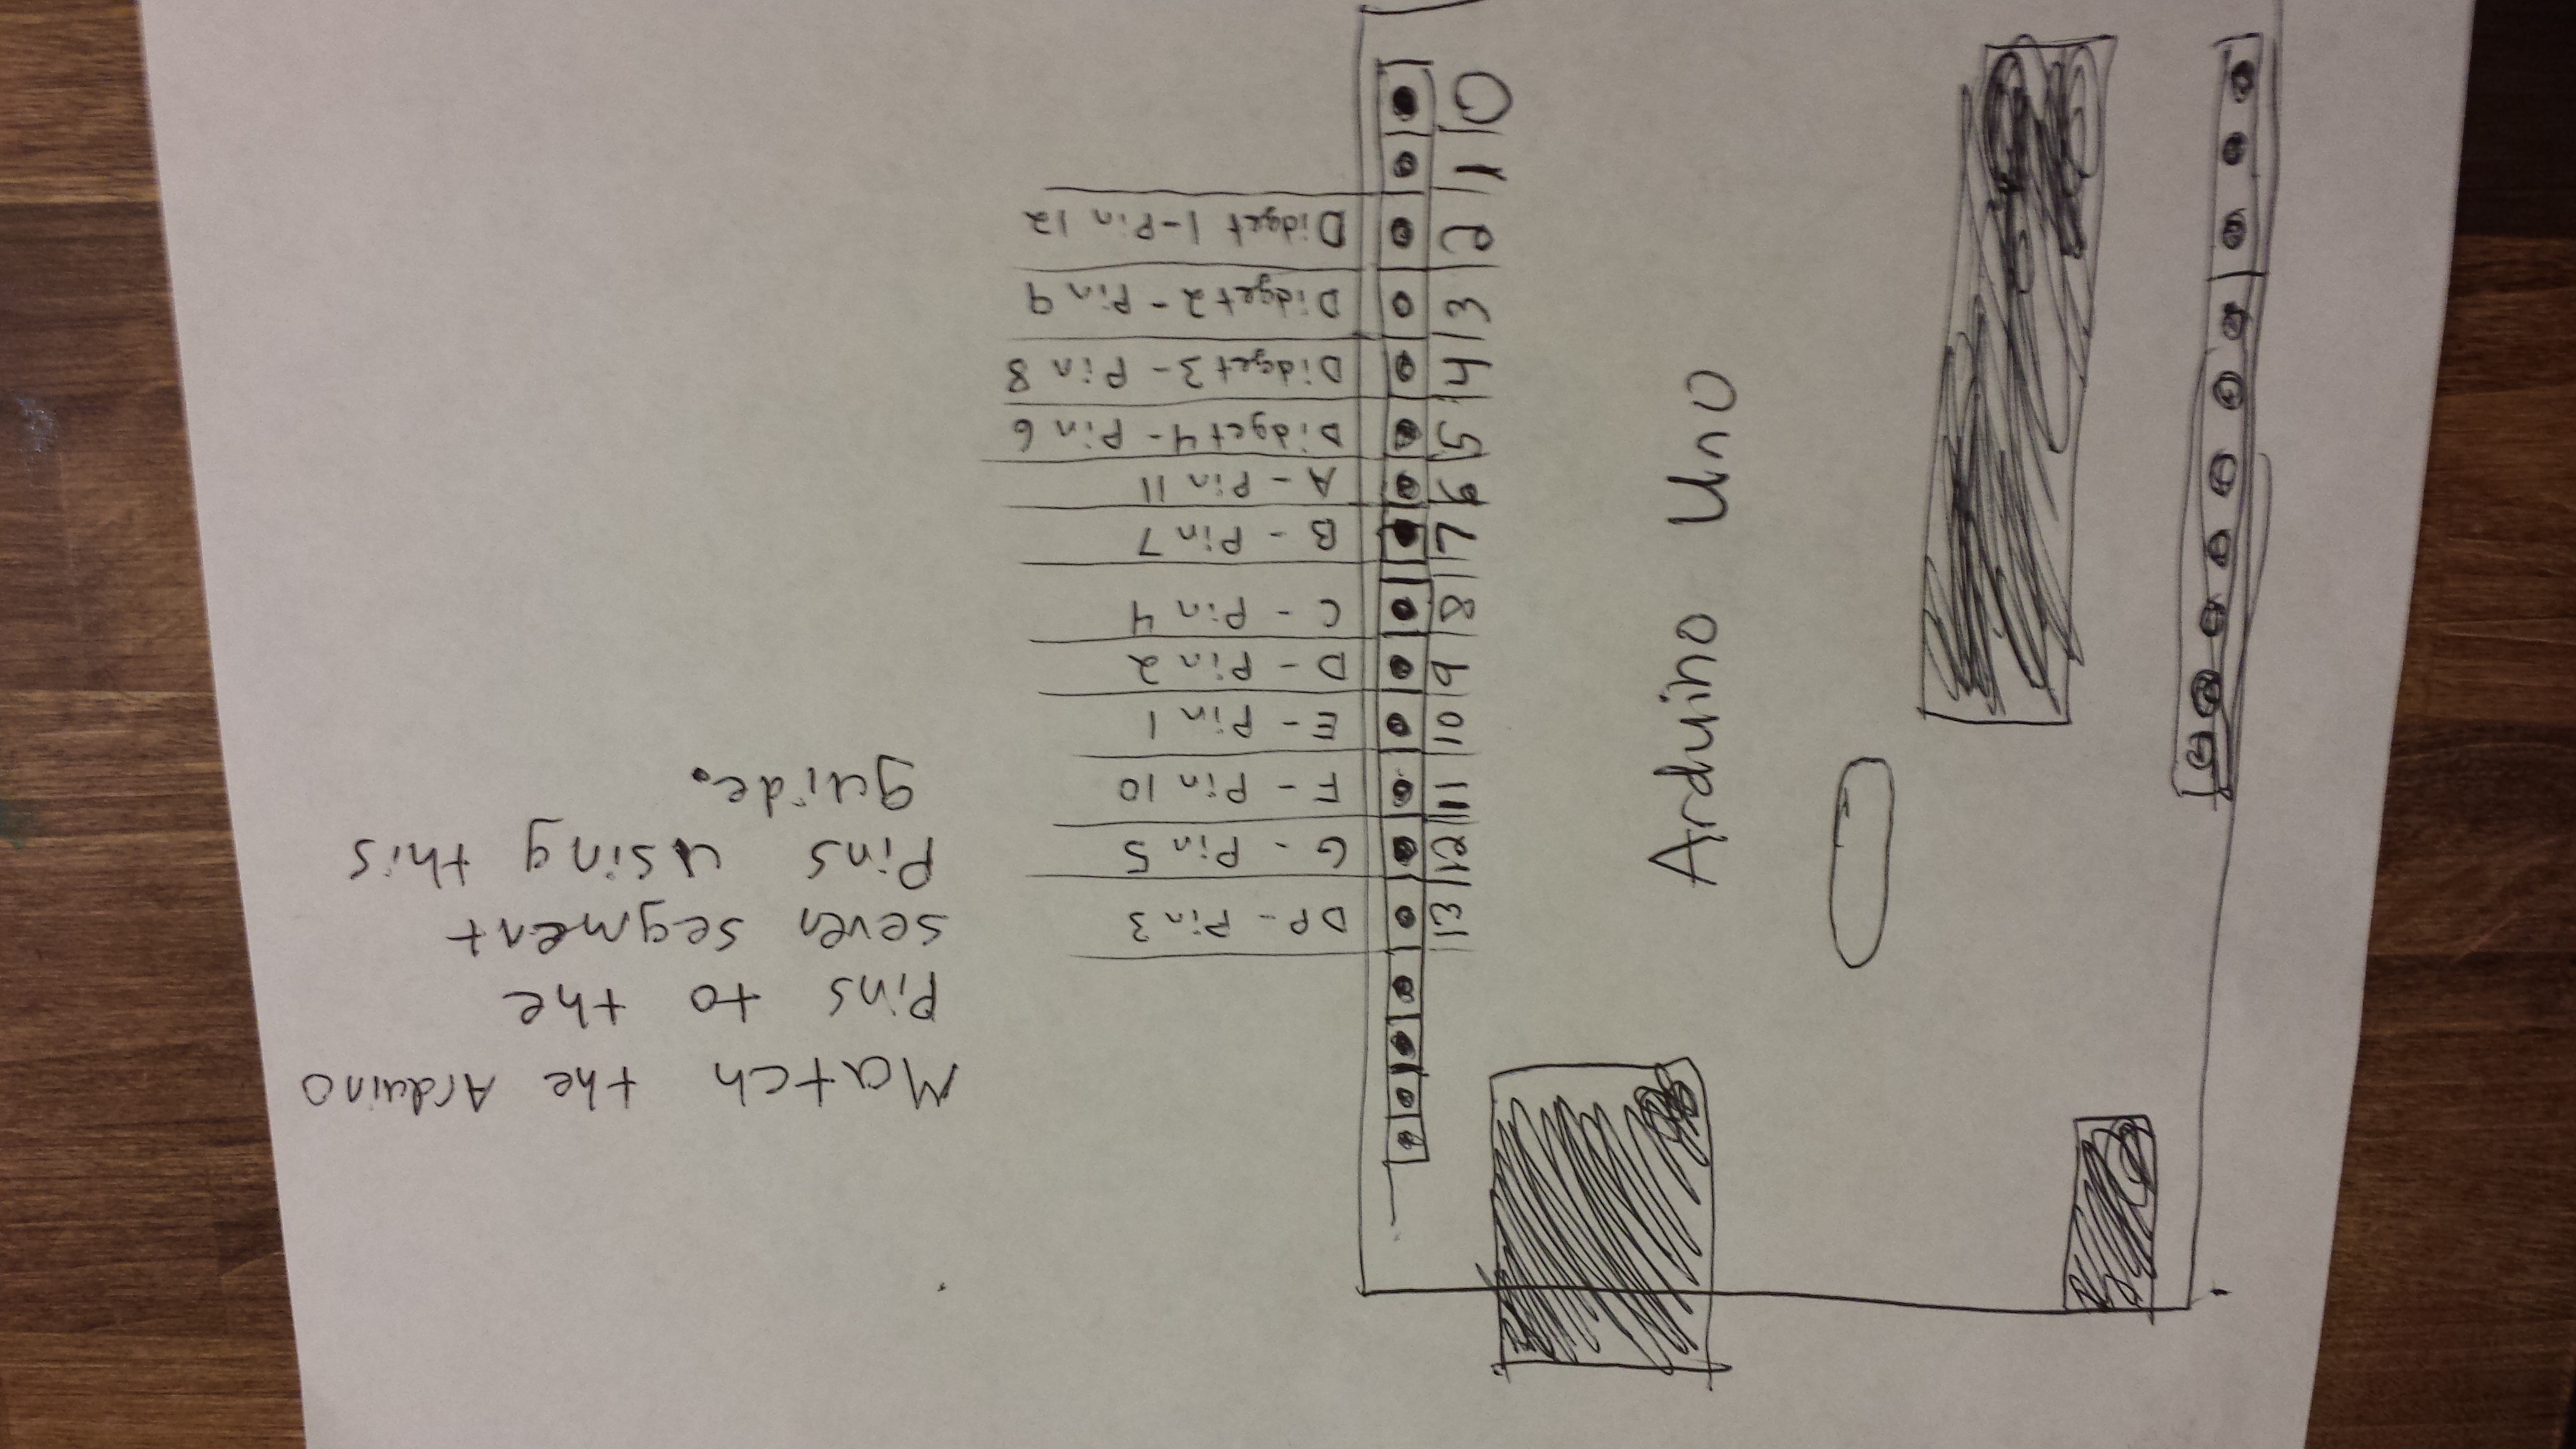 Match the Arduino
Pins to the
seven segment
Pins using this
guide.
DP - Pin 3
G - Pin 5
F - Pin 10
E - Pin 1
D - Pin 2
C - Pin 4
B - Pin 7
A - Pin 11
Didget 4 - Pin 6
Didget 3 - Pin 8
Didget 2 - Pin 9
Didget 1 - Pin 12
13 12 11 10 9 8 7 6 5 4 3 2 1 0
Arduino Uno